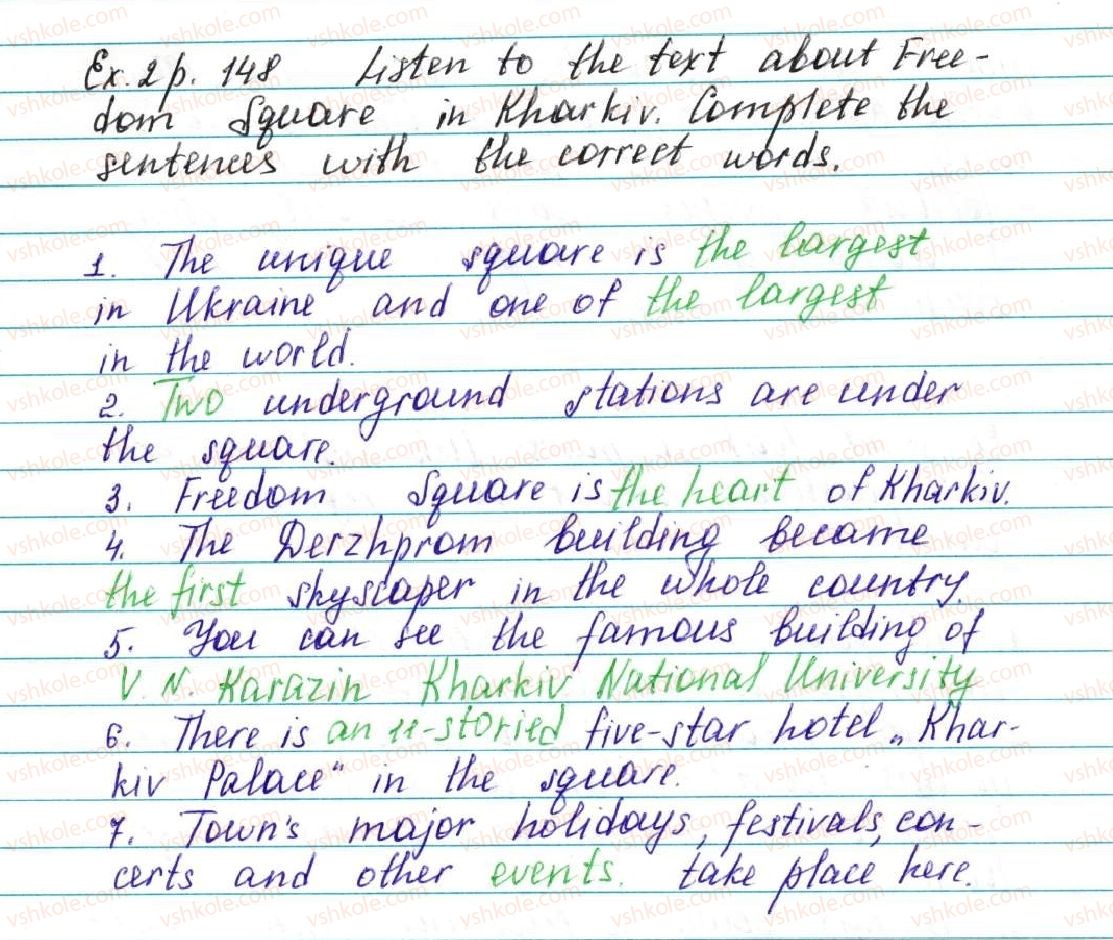 Ex. 2 p. 148 Listen to the text about Free-
dom Square in Kharkiv. Complete the
sentences with the correct words.
1. The unique square is the largest
in Ukraine and one of the largest
in the world.
2. Two underground stations are under
the square.
3. Freedom Square is the heart of Kharkiv.
4. The Derzhprom building became
the first skyscaper in the whole country.
5. You can see the famous building of
V. N. Karazin Kharkiv National University
6. There is an 11-storied five-star hotel „Khar-
kiv Palace“ in the square.
7. Town's major holidays, festivals, con-
certs and other events. take place here.
vshkole.com